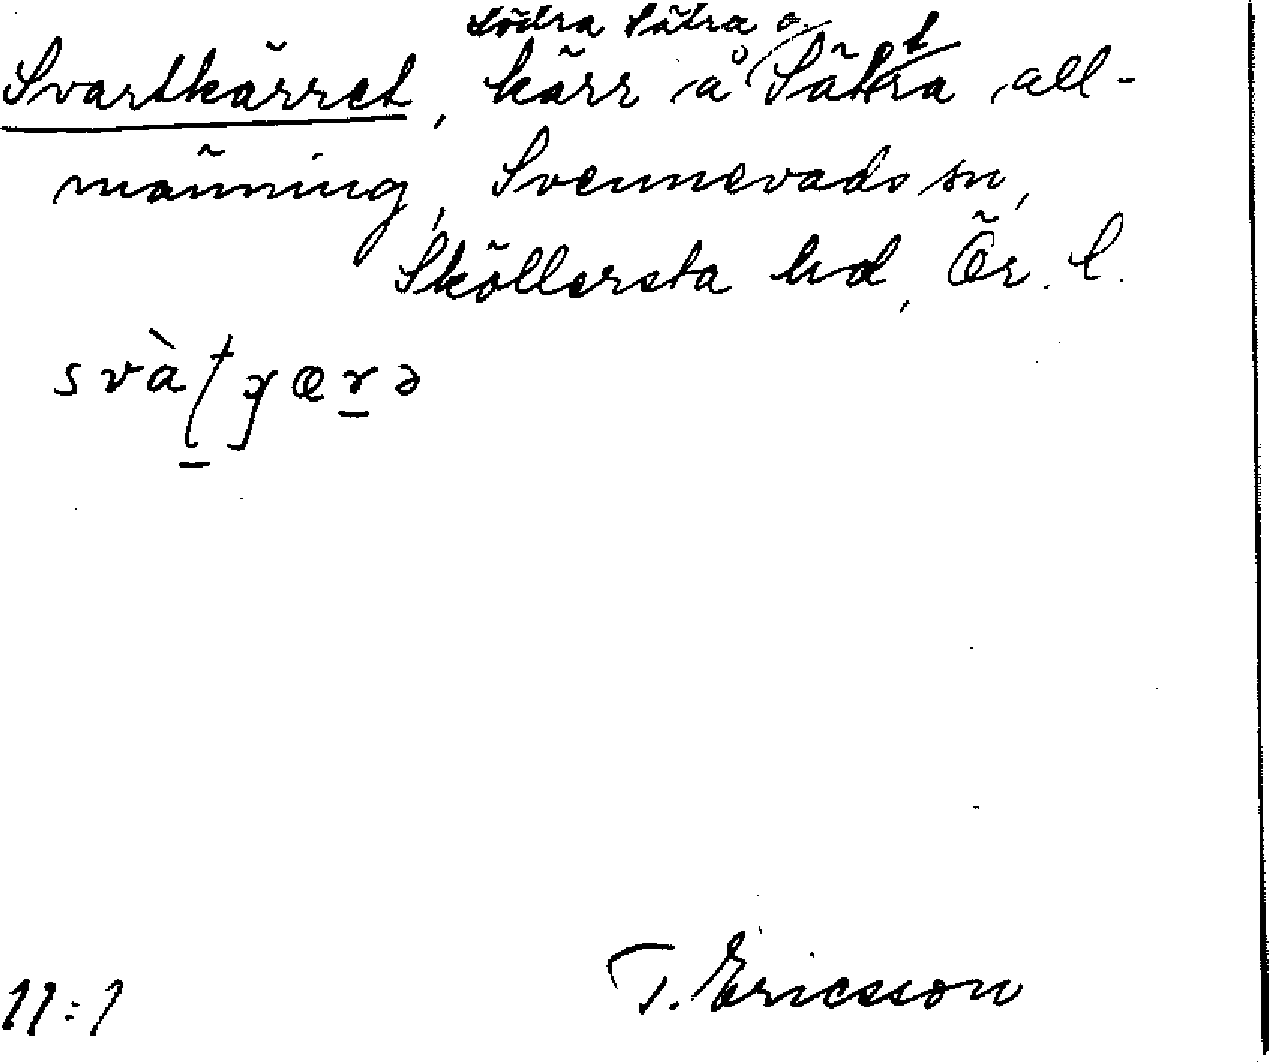 Södra Sätra o.
Svartkärret, kärr å Sätra all-
männing, Svennevads sn,
Sköllersta hd, Ör. l.
11:1
T. Ericsson